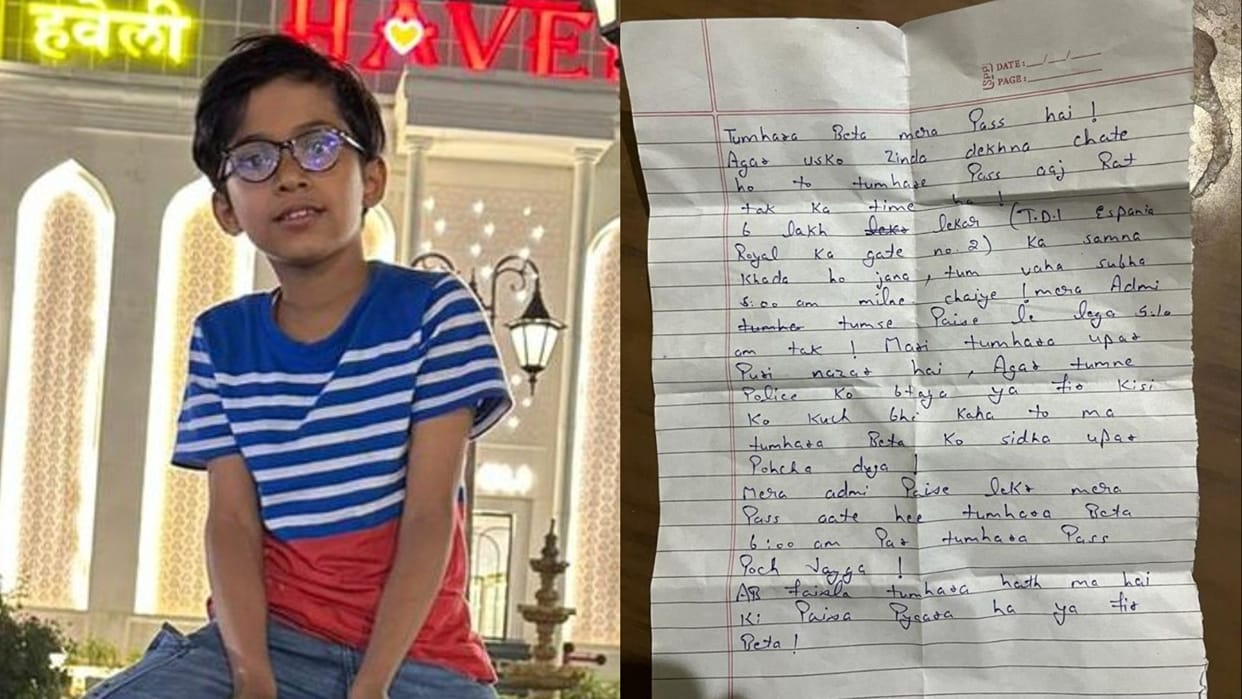 हवेली
HAVE
SPP DATE: __/__/__
PAGE: ______
Tumhara Beta mera Pass hai !
Agar usko Zinda dekhna chate
ho to tumhare Pass aaj Rat
tak ka time ha !
6 lakh lekar (T.D.I Espania
Royal ka gate no. 2) ka samna
Khada ho jana, tum vaha subha
5:00 am milne chaiye ! mera Admi
tumse Paise le lega 5:10
am tak ! Mari tumhara upar
Puri nazar hai, Agar tumne
Police ko btaya ya fir Kisi
Ko Kuch bhi Kaha to ma
tumhara Beta Ko sidha upar
Pohcha dyga !
Mera admi Paise lekr mera
Pass aate hee tumhara Beta
6:00 am Par tumhara Pass
Poch Jayga !
AB faisla tumhara hath ma hai
Ki Paisa Pyaara ha ya fir
Beta !